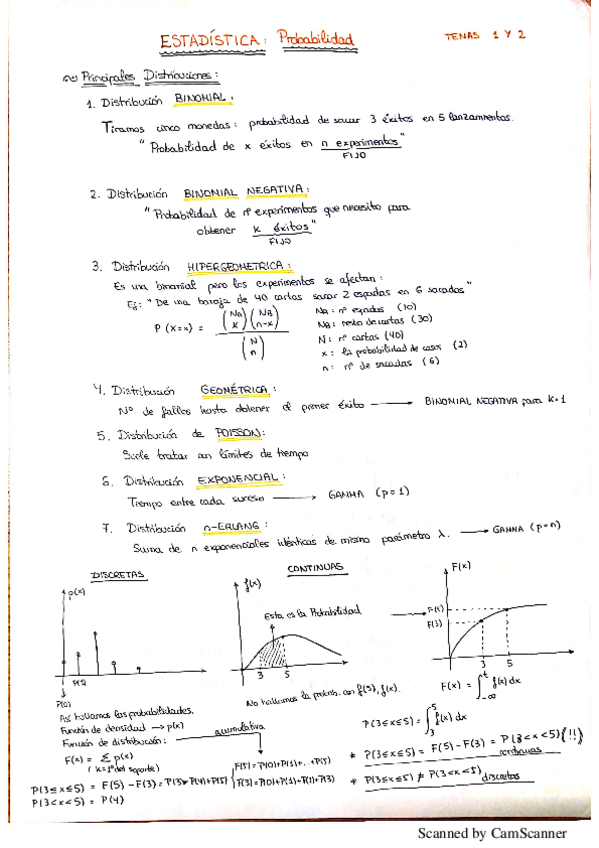 ESTADÍSTICA: Probabilidad
TEMAS 1 Y 2
Principales Distribuciones:
1. Distribución BINOMIAL.
Tiramos cinco monedas: probabilidad de sacar 3 éxitos en 5 lanzamientos.
"Probabilidad de x éxitos en n experimentos"
FIJO
2. Distribución BINOMIAL NEGATIVA:
"Probabilidad de nº experimentos que necesito para
obtener k éxitos"
FIJO
3. Distribución HIPERGEOMETRICA:
Es una binomial pero los experimentos se afectan:
Ej: "De una baraja de 40 cartas sacar 2 espadas en 6 sacadas"
P(X=x) = (Na x)(NB n-x) / (N n)
Na: nº espadas (10)
NB: resto de cartas (30)
N: nº cartas (40)
x: la probabilidad de casos (2)
n: nº de sacadas (6)
4. Distribución GEOMÉTRICA:
Nº de fallos hasta obtener el primer éxito → BINOMIAL NEGATIVA para k=1
5. Distribución de POISSON:
Suele tratar un límites de tiempo
6. Distribución EXPONENCIAL:
Tiempo entre cada suceso → GAMMA (p=1)
7. Distribución n-ERLANG:
Suma de n exponenciales idénticas de mismo parámetro λ. → GAMMA (p=n)
DISCRETAS
p(x)
P(2)
P(0)
Así hallamos las probabilidades.
Función de densidad → p(x)
Función de distribución:
acumulativa
F(x) = Σ p(x)
F(5)=P(0)+P(1)+...+P(5)
F(3)=P(0)+P(1)+P(2)+P(3)
P(3≤x≤5) = F(5)-F(3) =
P(3<x<5) = P(4)
CONTINUAS
f(x)
Esta es la Probabilidad
3 5
No hallamos la probab. con f(5), f(x).
F(x)
F(5)
F(3)
3 5
F(x) = ∫_-∞^t f(x) dx
P(3≤x≤5) = ∫_3^5 f(x) dx
* P(3≤x≤5) = F(5)-F(3) = P(3<x<5) (!!)
continuas
* P(3≤x≤5) ≠ P(3<x<5) discretas
Scanned by CamScanner